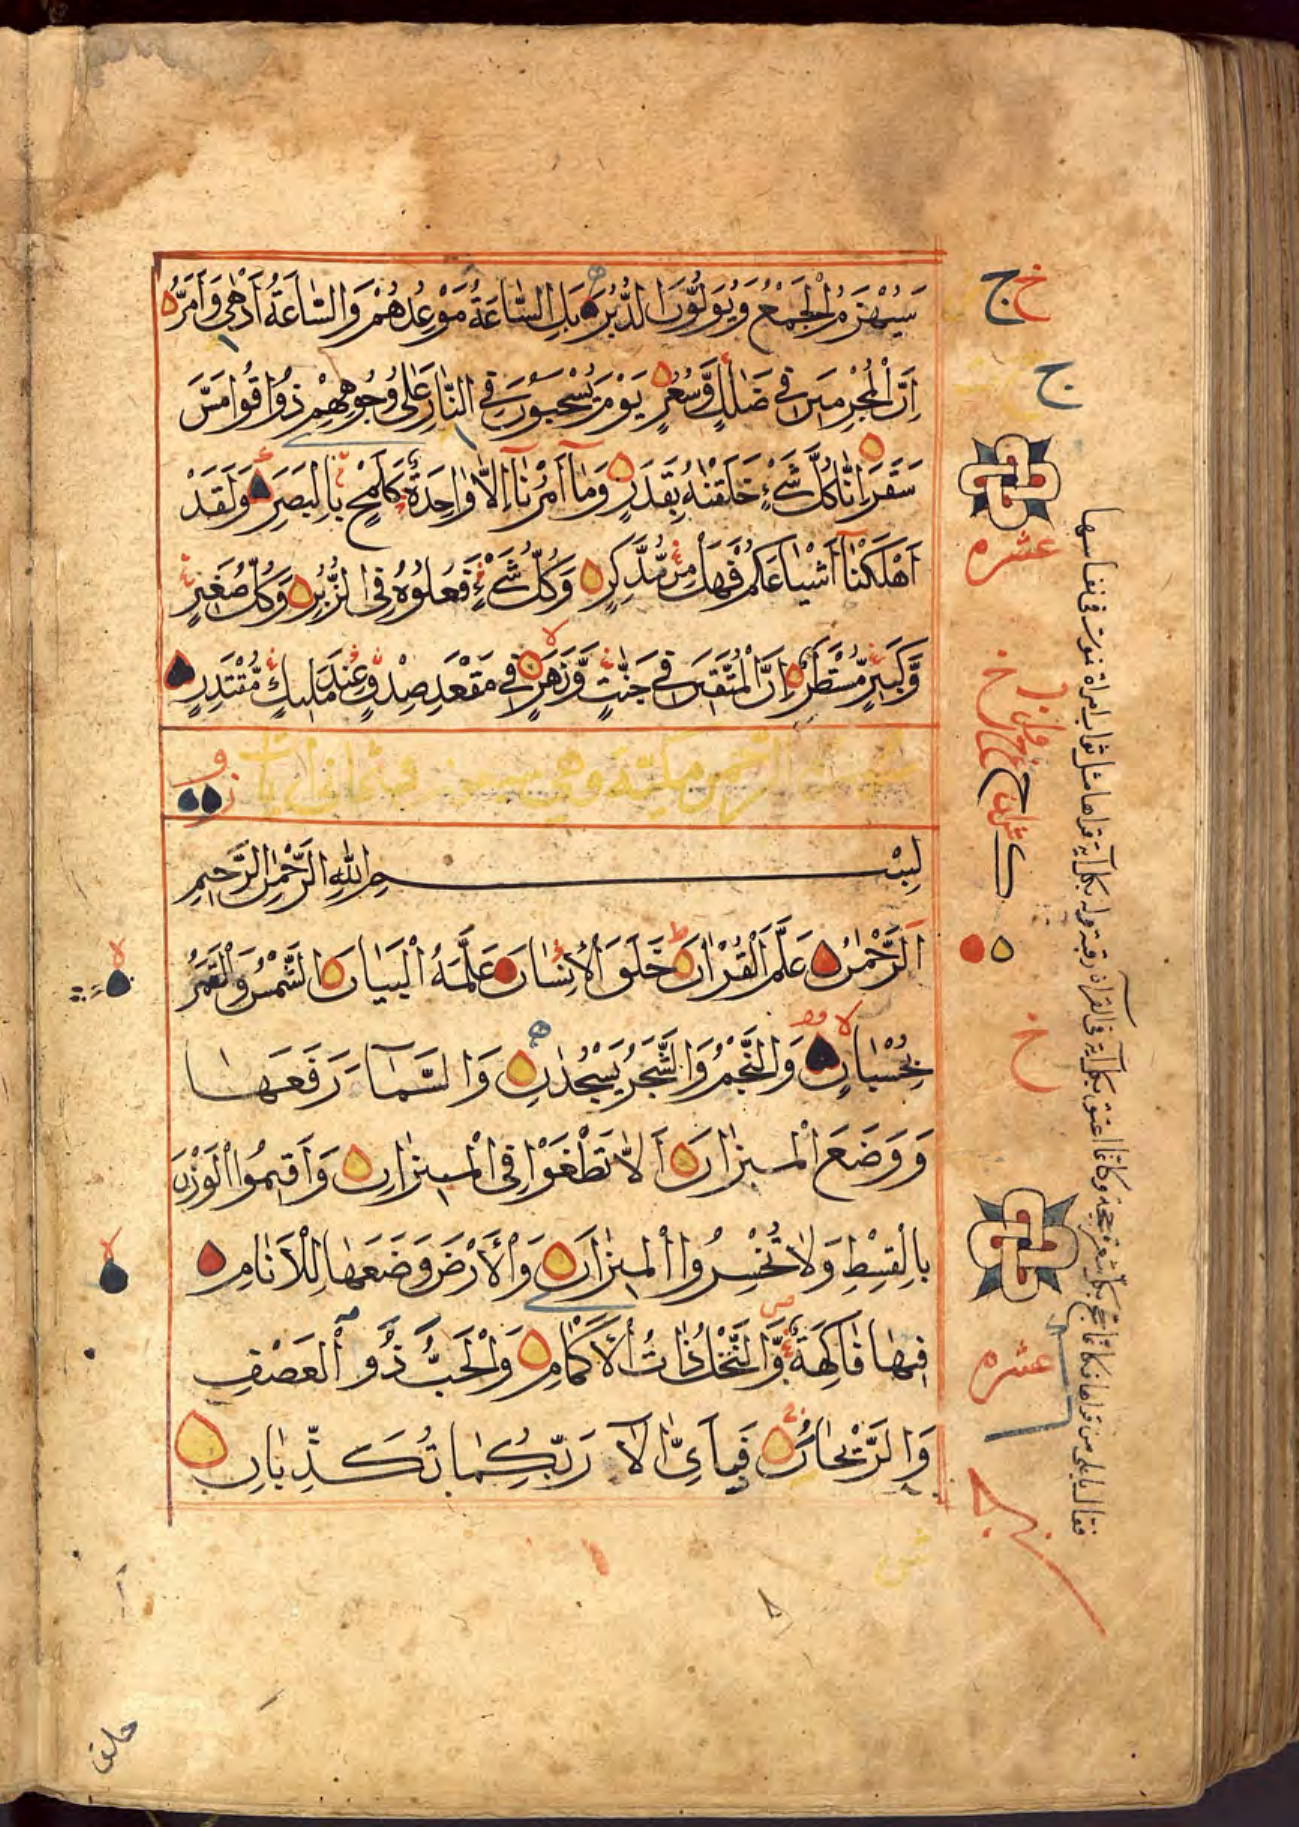 سَيُهْزَمُ الْجَمْعُ وَيُوَلُّونَ الدُّبُرَ بَلِ السَّاعَةُ مَوْعِدُهُمْ وَالسَّاعَةُ أَدْهٰى وَأَمَرُّ
اِنَّ الْمُجْرِمِينَ فِي ضَلٰلٍ وَّسُعُرٍ يَوْمَ يُسْحَبُونَ فِي النَّارِ عَلٰى وُجُوهِهِمْ ذُوقُوا مَسَّ
سَقَرَ اِنَّا كُلَّ شَيْءٍ خَلَقْنٰهُ بِقَدَرٍ وَمَا أَمْرُنَا اِلَّا وَاحِدَةٌ كَلَمْحٍ بِالْبَصَرِ وَلَقَدْ
اَهْلَكْنَا اَشْيَاعَكُمْ فَهَلْ مِنْ مُّدَّكِرٍ وَكُلُّ شَيْءٍ فَعَلُوهُ فِي الزُّبُرِ وَكُلُّ صَغِيرٍ
وَّكَبِيرٍ مُّسْتَطَرٌ اِنَّ الْمُتَّقِينَ فِي جَنّٰتٍ وَّنَهَرٍ فِي مَقْعَدِ صِدْقٍ عِنْدَ مَلِيكٍ مُّقْتَدِرٍ
سورة الرحمن مكية وهي سبعون وثماني آيات
بِسْمِ اللّٰهِ الرَّحْمٰنِ الرَّحِيمِ
اَلرَّحْمٰنُ عَلَّمَ الْقُرْاٰنَ خَلَقَ الْاِنْسَانَ عَلَّمَهُ الْبَيَانَ الشَّمْسُ وَالْقَمَرُ
بِحُسْبَانٍ وَالنَّجْمُ وَالشَّجَرُ يَسْجُدٰنِ وَالسَّمَآءَ رَفَعَهَا
وَوَضَعَ الْمِيزَانَ اَلَّا تَطْغَوْا فِي الْمِيزَانِ وَأَقِيمُوا الْوَزْنَ
بِالْقِسْطِ وَلَا تُخْسِرُوا الْمِيزَانَ وَالْأَرْضَ وَضَعَهَا لِلْأَنَامِ
فِيهَا فَاكِهَةٌ وَّالنَّخْلُ ذَاتُ الْأَكْمَامِ وَالْحَبُّ ذُو الْعَصْفِ
وَالرَّيْحَانُ فَبِأَيِّ اٰلَآءِ رَبِّكُمَا تُكَذِّبَانِ
ج خ
ج
عشره
خ
خ
عشره
خلق